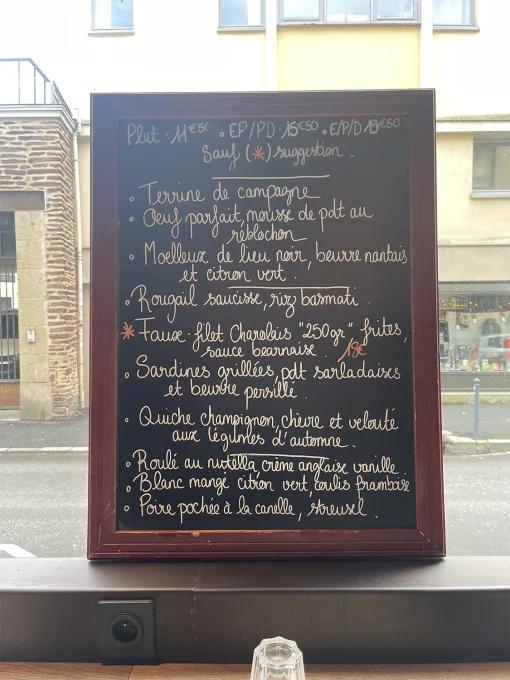 Plat · 11€50 · EP/PD · 15€50 · E/P/D 18€50
Sauf (*) suggestion.
° Terrine de campagne
° Oeuf parfait, mousse de pdt au
reblochon
° Moelleux de lieu noir, beurre nantais
et citron vert.
° Rougail saucisse, riz basmati.
* Faux-filet Charolais "250gr" frites,
sauce bearnaise. 18€
° Sardines grillées, pdt sarladaises
et beurre persillé.
° Quiche champignon, chèvre et velouté
aux légumes d'automne.
° Roulé au nutella, crème anglaise vanille.
° Blanc mangé citron vert, coulis framboise
° Poire pochée à la canelle, streusel.